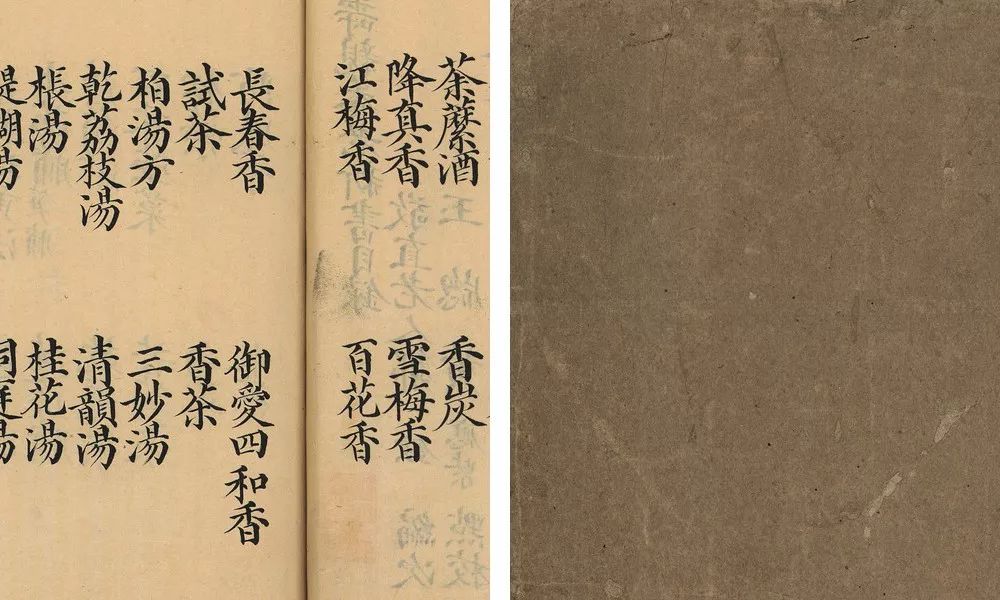 荼䕷酒 香炭
降真香 雪梅香
江梅香 百花香
長春香 御愛四和香
試茶 香茶
柏湯方 三妙湯
乾荔枝湯 清韻湯
棖湯 桂花湯